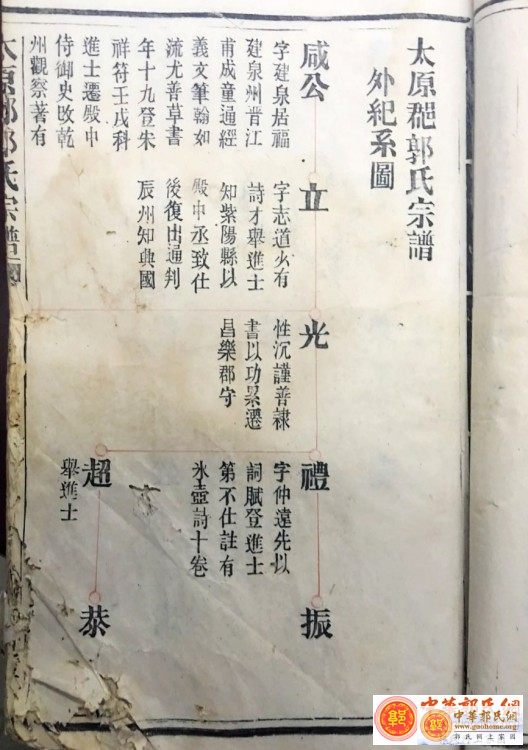 太原郡郭氏宗譜
外紀系圖
咸公
字建泉居福
建泉州晋江
甫成童通經
義文筆翰如
流尤善草書
年十九登朱
祥符壬戌科
進士遷殿中
侍御史改乾
州觀察著有
立
字志道少有
詩才舉進士
知紫陽縣以
殿中丞致仕
後復出通判
辰州知典國
光
性沉謹善隸
書以功累遷
昌樂郡守
禮
字仲遠先以
詞賦登進士
第不仕註有
氷壺詩十卷
超
舉進士
振
恭
太原郡郭氏宗譜
中華郭氏網
郭氏網上家園